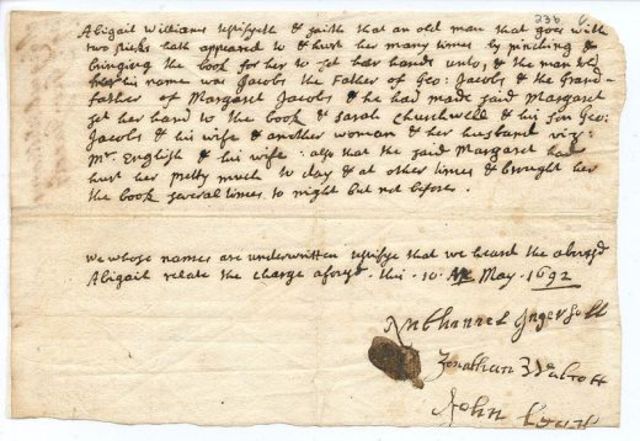 236
Abigail Williams testifyeth & saith that an old man that goes with
two sticks hath appeared to & hurt her many times by pinching &
bringing the book for her to set her hands unto, & the man told
her his name was Jacobs the Father of Geo: Jacobs & the Grand-
father of Margaret Jacobs & he had made said Margaret
set her hand to the book & Sarah Churchwell & his son Geo:
Jacobs & his wife & another woman & her husband viz:
Mr. English & his wife: also that the said Margaret had
hurt her pretty much to day & at other times & brought her
the book several times to night but not before.
we whose names are underwritten testifye that we heard the abovesd
Abigail relate the charge aforesd. this. 10. May. 1692
Nathannel Ingersoll
Jonathan Walcott
John